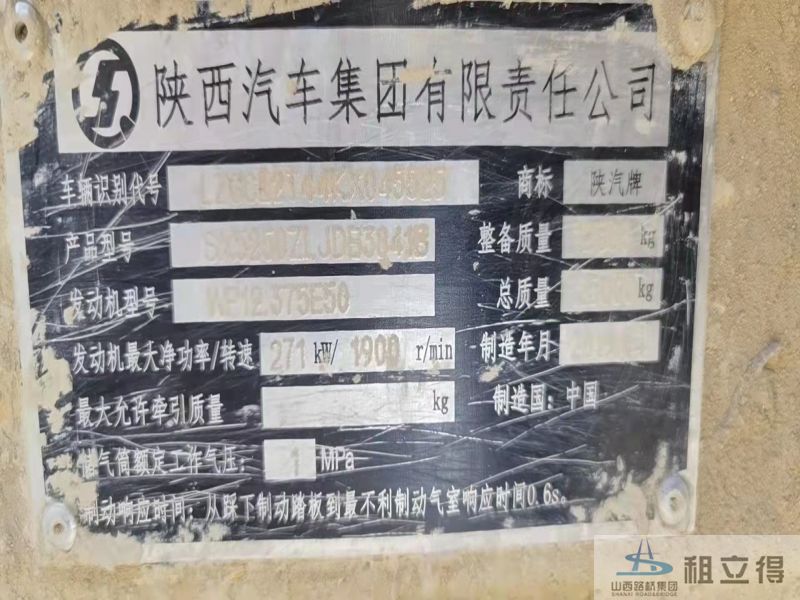 陕西汽车集团有限责任公司
车辆识别代号 商标 陕汽牌
产品型号 整备质量 kg
发动机型号 WP12.375E50 总质量 kg
发动机最大净功率/转速 271 kW/ 1900 r/min 制造年月
最大允许牵引质量 kg 制造国：中国
储气筒额定工作气压： 1 MPa
制动响应时间：从踩下制动踏板到最不利制动气室响应时间0.6s。
山西路桥集团
SHANXI ROAD&BRIDGE
租立得